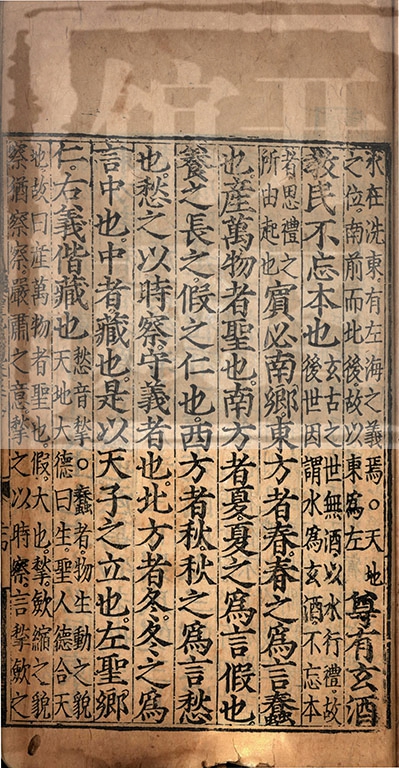 水在洗東有左海之義焉。○天地
之位。南前而北後。故以東爲左
尊有玄酒
教民不忘本也
玄古之世無酒。以水行禮。故
後世因謂水爲玄酒。不忘本
者。思禮之
所由起也
賓必南鄉。東方者春。春之爲言蠢
也。產萬物者聖也。南方者夏。夏之爲言假也。
養之長之假之仁也。西方者秋。秋之爲言愁
也。愁之以時察。守義者也。北方者冬。冬之爲
言中也。中者藏也。是以天子之立也。左聖鄉
仁。右義偝藏也
愁音揫。○蠢者。物生動之貌
天地大德曰生。聖人德合天
地。故曰產萬物者聖也。假。大也。揫。斂縮之貌
察猶察察。嚴肅之意。揫之以時察。言揫斂之